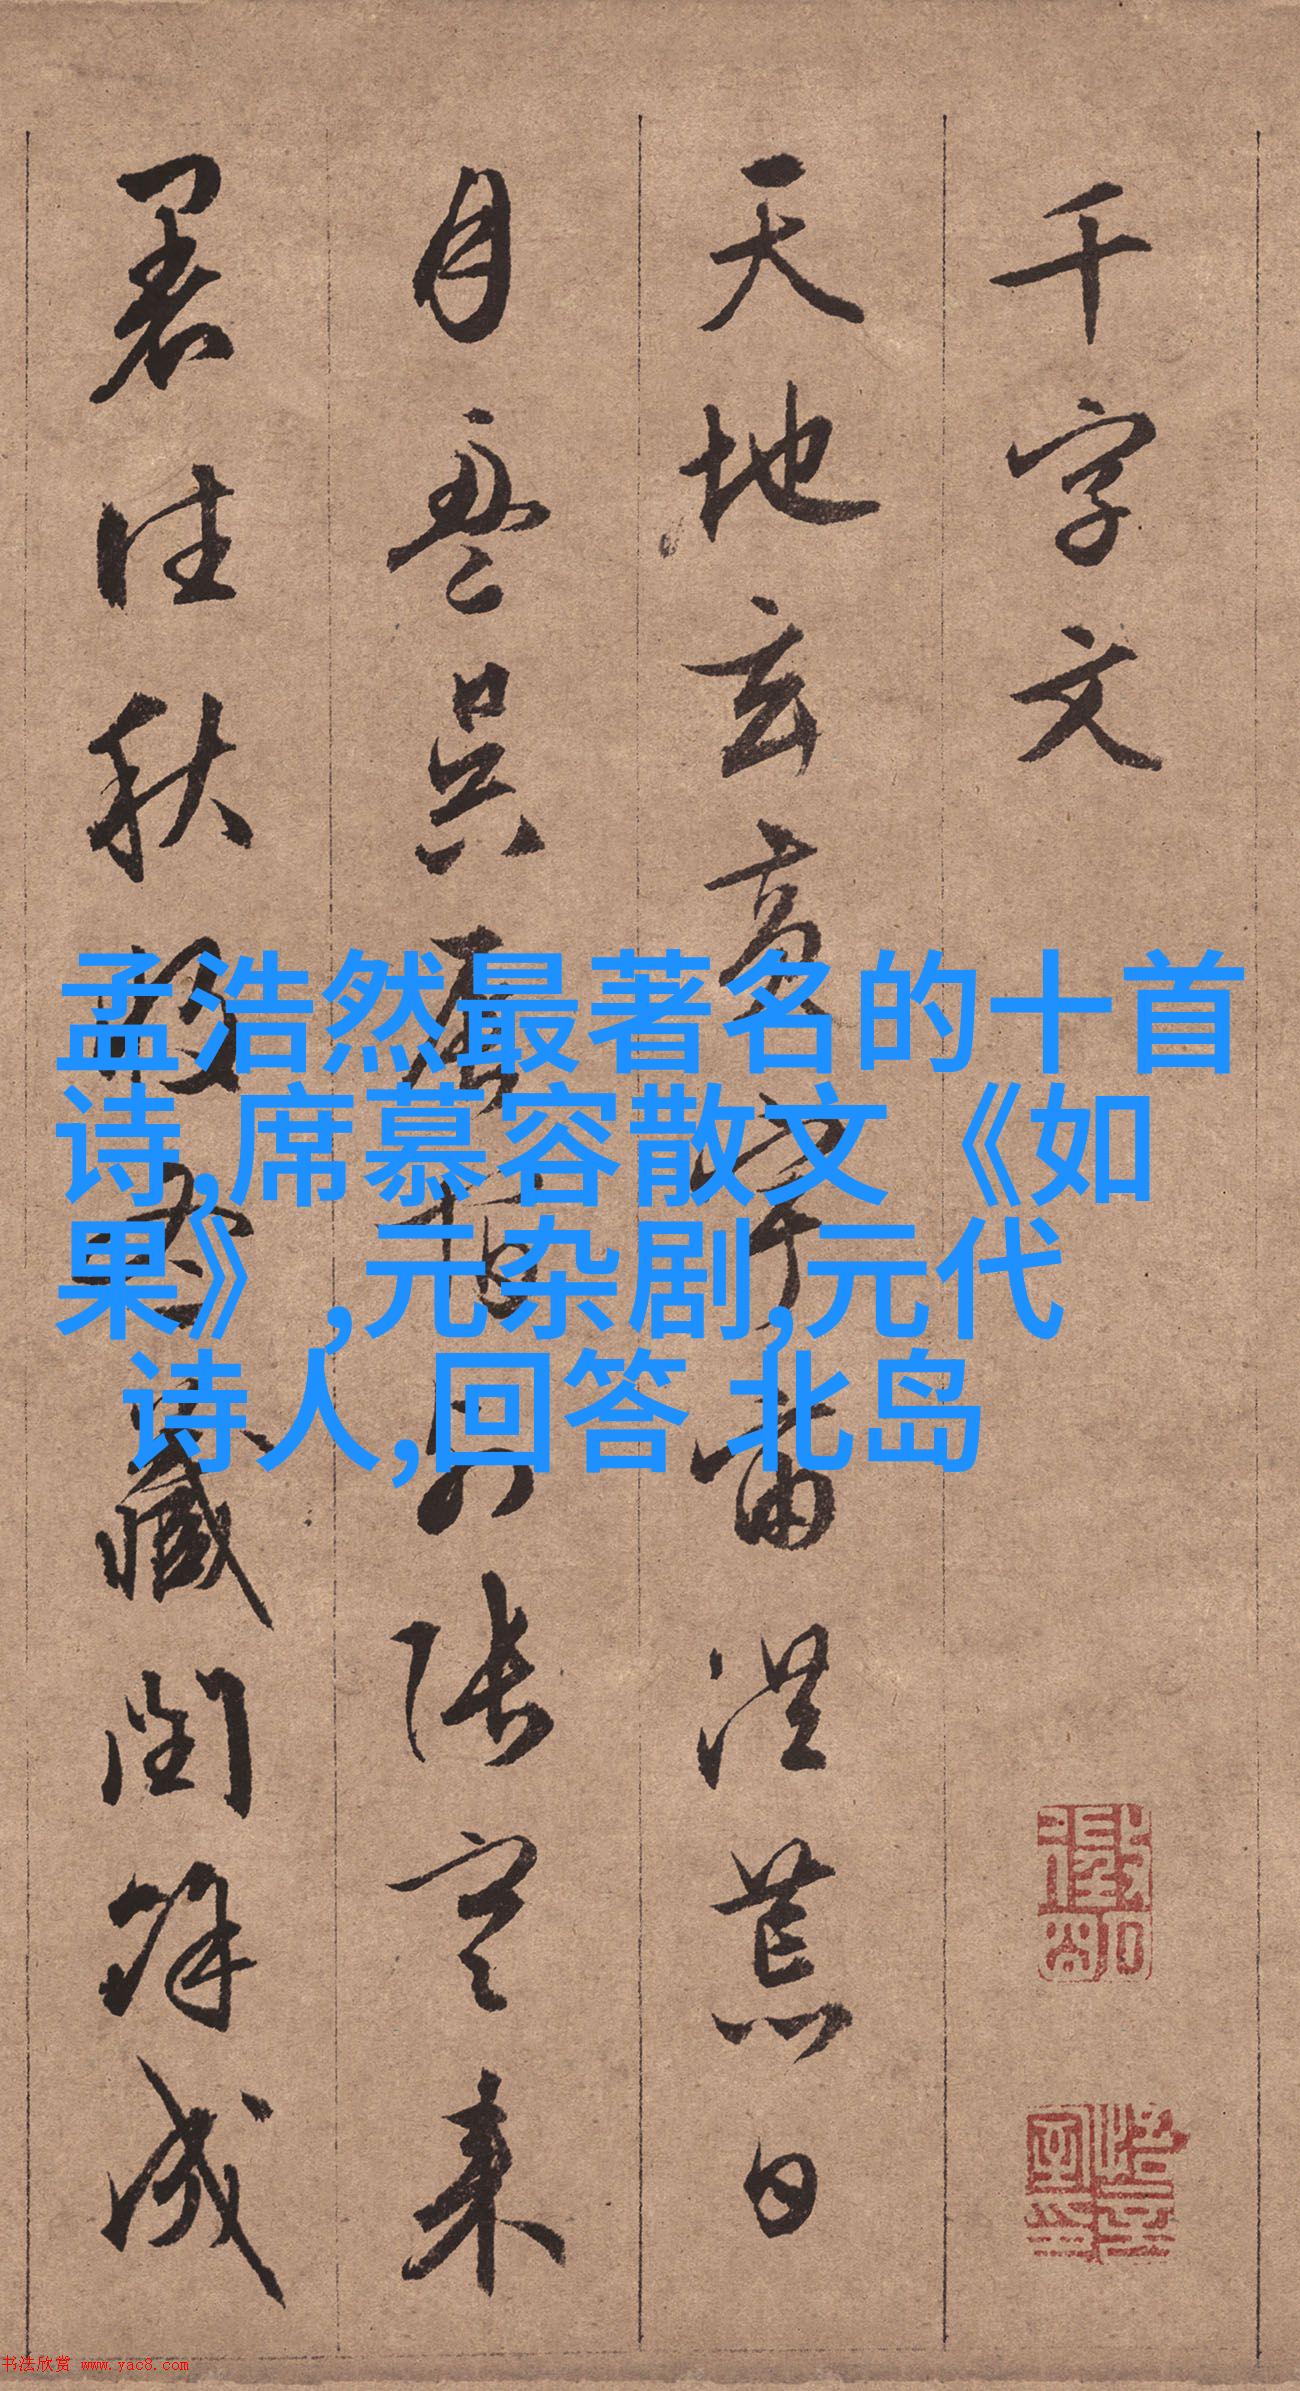 千字文
天地玄黃宇宙洪荒日
月盈昃辰宿列張寒来
暑往秋收冬藏閏餘成
孟浩然最著名的十首
诗,席慕容散文《如
果》,元杂剧,元代
诗人,回答 北岛
书法欣赏 www.yac8.com